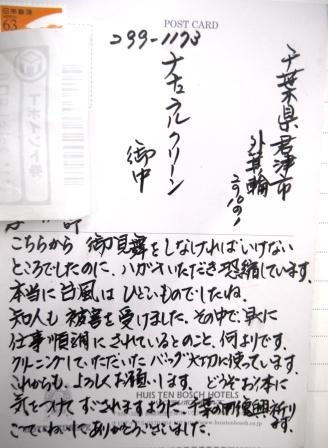 日本郵便
63
POST CARD
299-1173
千葉県君津市
外箕輪
ナチュラルクリーン
御中
こちらから御見舞をしなければいけない
ところでしたのに、ハガキいただき恐縮しています。
本当に台風はひどいものでしたね。
知人も被害を受けました。その中で早くに
仕事順調にされているとのこと、何よりです。
クリーニングしていただいたバッグ大切に使っています。
これからも、よろしくお願いします。どうぞお体に
気をつけてすごされますように。千葉の復興祈ります
ごていねいにありがとうございました。
HUIS TEN BOSCH HOTELS